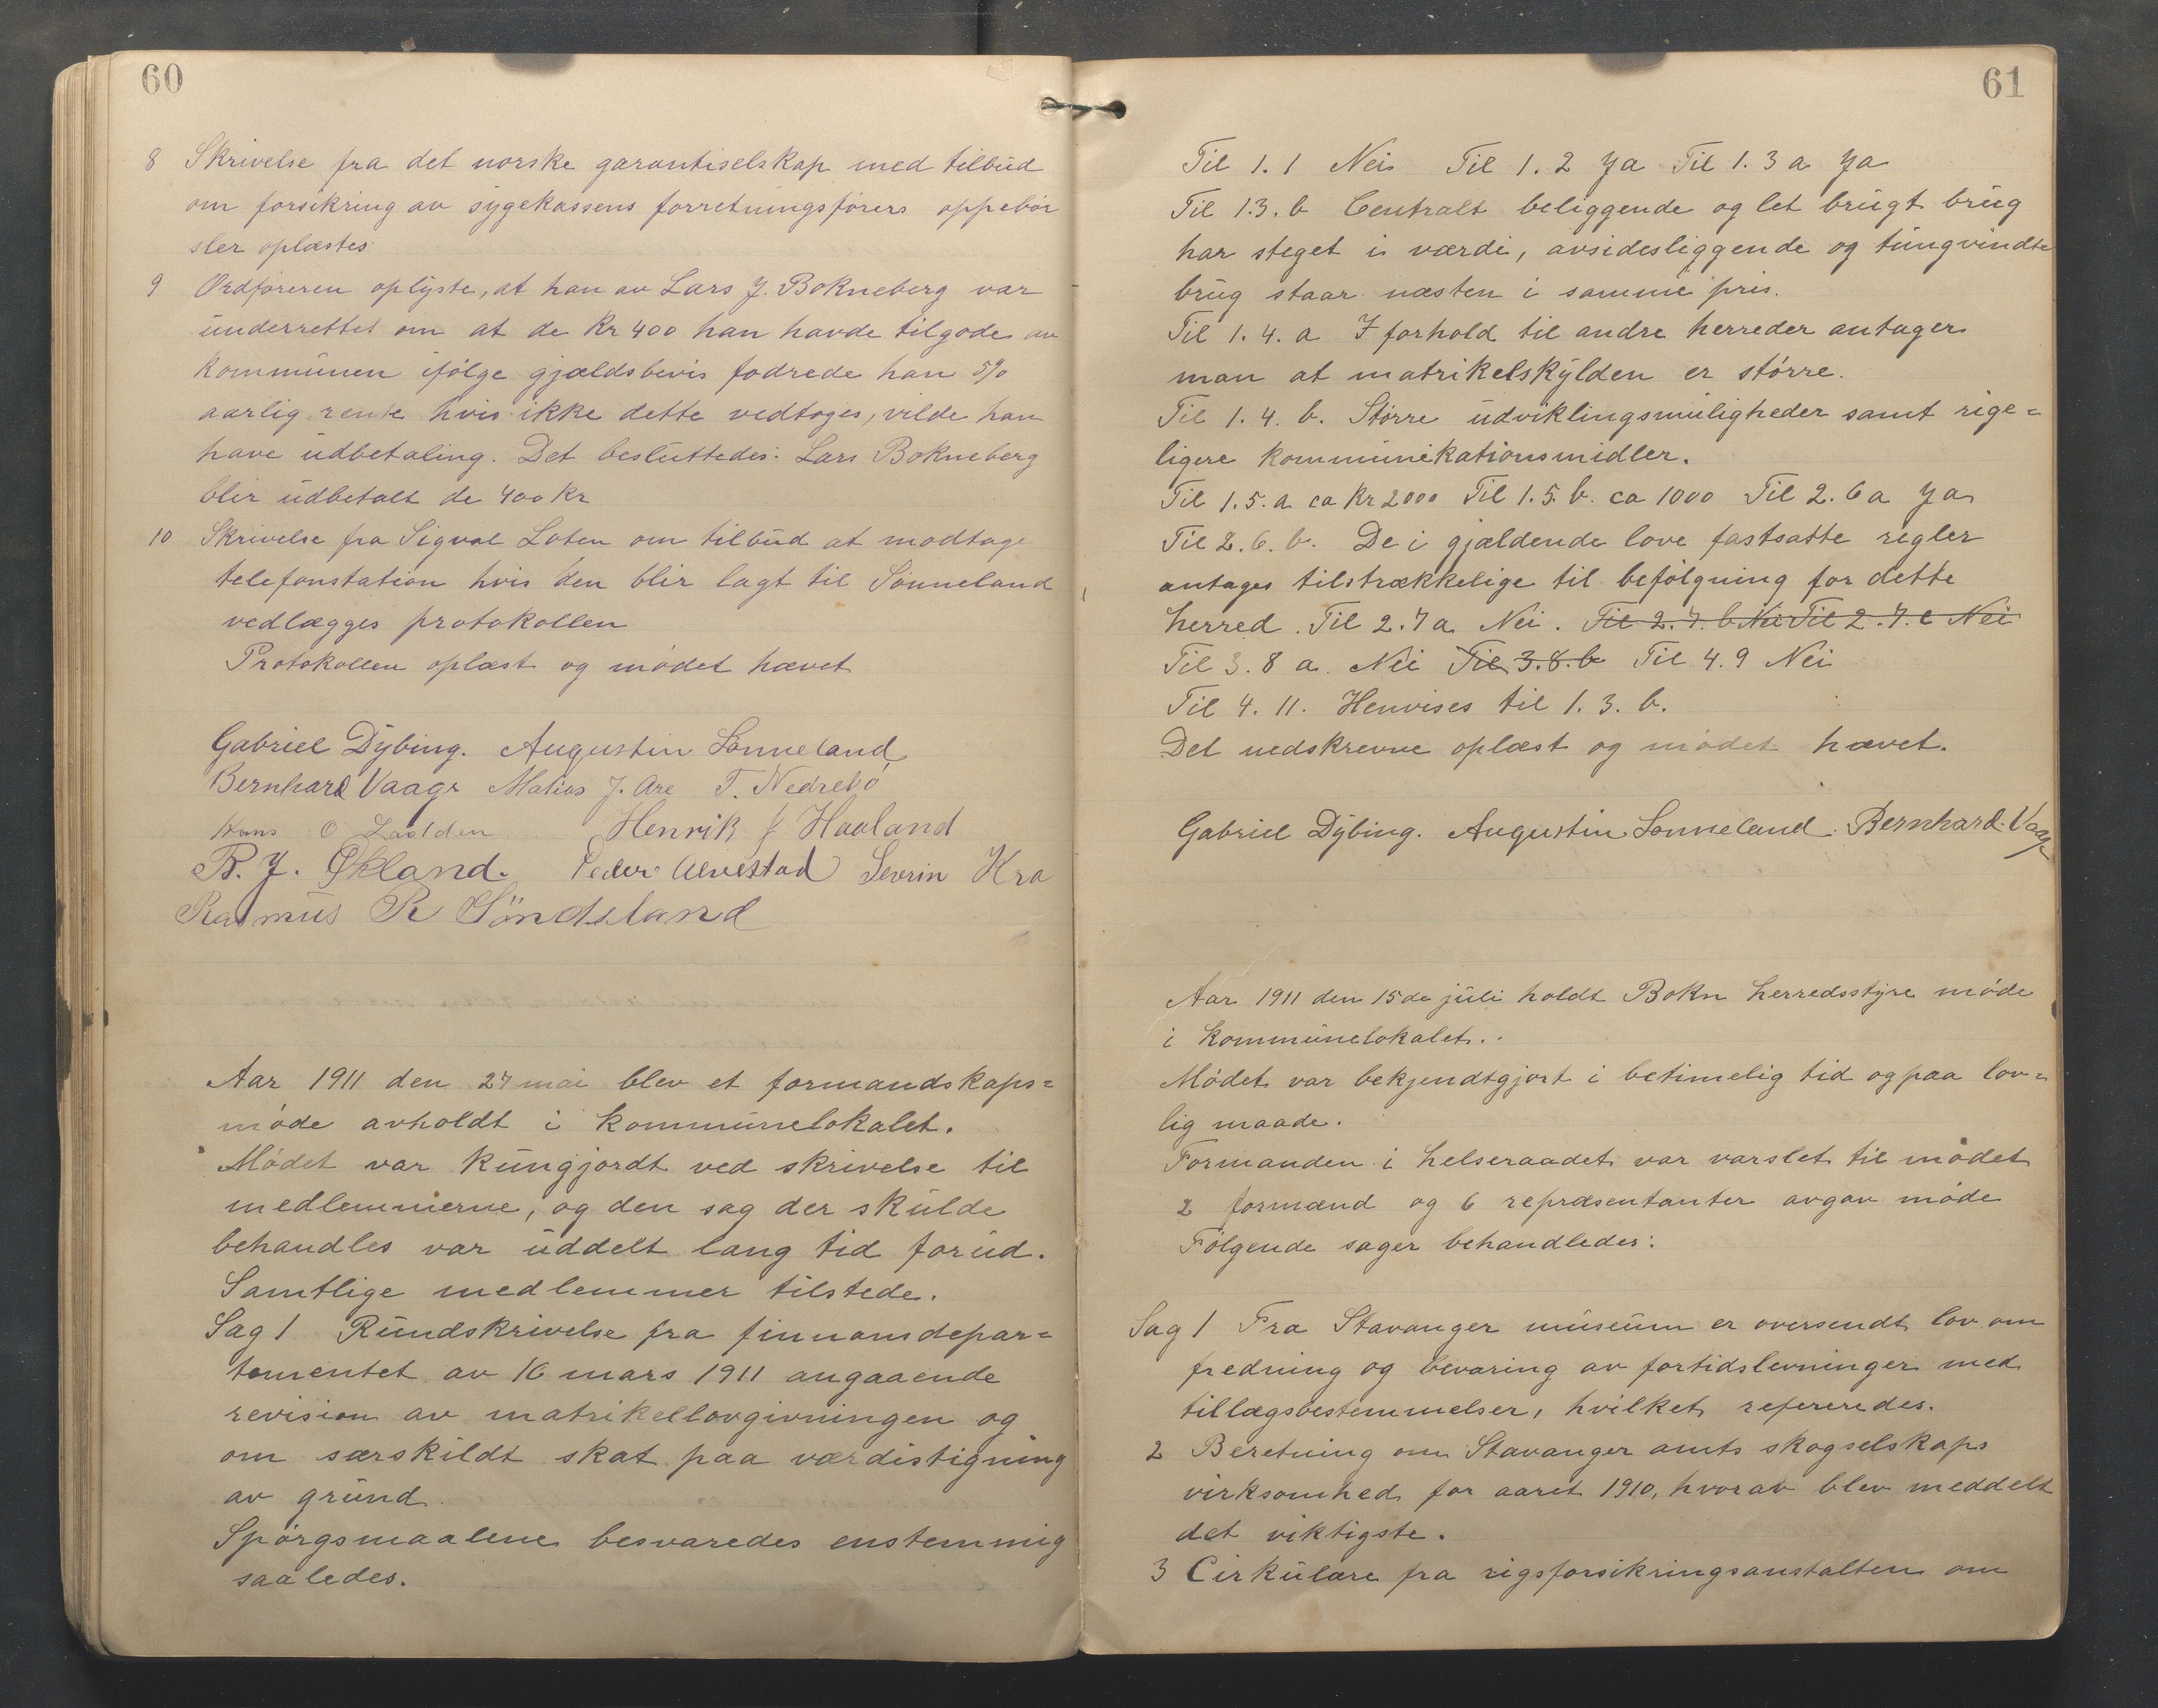 60
8 Skrivelse fra det norske garantiselskap med tilbud
om forsikring av sygekassens forretningsförers oppebör
sler oplæstes
9 Ordföreren oplyste, at han av Lars J. Bokneberg var
underrettet om at de Kr 400 han havde tilgode av
Kommunen ifölge gjældsbevis fodrede han 5%
aarlig rente hvis ikke dette vedtoges, vilde han
have udbetaling. Det besluttedes: Lars Bokneberg
blir udbetalt de 400 Kr
10 Skrivelse fra Sigval Loten om tilbud at modtage
telefonstation hvis den blir lagt til Sönneland
vedlægges protokollen
Protokollen oplæst og mödet hævet
Gabriel Dybing. Augustin Sonneland
Bernhard Vaage Matias J. Are T. Nedrebö
Hans O Henrik J Haaland
B. J. Økland. Peder Alvestad Sevrin Kro
Rasmus R Söndeland
Aar 1911 den 27 mai blev et formandskaps=
möde avholdt i kommunelokalet.
Mödet var kungjordt ved skrivelse til
medlemmerne, og den sag der skulde
behandles var uddelt lang tid forud.
Samtlige medlemmer tilstede.
Sag 1 Rundskrivelse fra finnansdepar=
tementet av 16 mars 1911 angaaende
revision av matrikellovgivningen og
om særskildt skat paa værdistigning
av grund.
Spörgsmaalene besvaredes enstemmig
saaledes.
61
Til 1.1 Nei Til 1.2 Ja Til 1.3 a Ja
Til 1.3.b Centralt beliggende og let brugt brug
har steget i værdi, avsidesliggende og tungvindte
brug staar næsten i samme pris.
Til 1.4.a I forhold til andre herreder antager
man at matrikelskylden er större.
Til 1.4.b. Större udviklingsmuligheder samt rige=
ligere kommunikationsmidler.
Til 1.5.a ca Kr 2000 Til 1.5.b. ca 1000 Til 2.6 a Ja
Til 2.6.b. De i gjældende love fastsatte regler
antages tilstrækkelige til befölgning for dette
herred. Til 2.7 a Nei. Til 2.7.b Nei Til 2.7.c Nei
Til 3.8 a. Nei Til 3.8.b Til 4.9 Nei
Til 4.11. Henvises til 1.3.b.
Det nedskrevne oplæst og mödet hævet.
Gabriel Dybing. Augustin Sonneland. Bernhard Vaage
Aar 1911 den 15de juli holdt Bokn herredsstyre möde
i kommunelokalet.
Mödet var bekjendtgjort i betimelig tid og paa lov=
lig maade.
Formanden i helseraadet var varslet til mödet
2 formænd og 6 repræsentanter avgav möde
Fölgende sager behandledes:
Sag 1 Fra Stavanger museum er oversendt lov om
fredning og bevaring av fortidslevninger med
tillægsbestemmelser, hvilket refereredes.
2 Beretning om Stavanger amts skogselskaps
virksomhed for aaret 1910, hvorav blev meddelt
det viktigste.
3 Cirkulære fra rigsforsikringsanstalten om